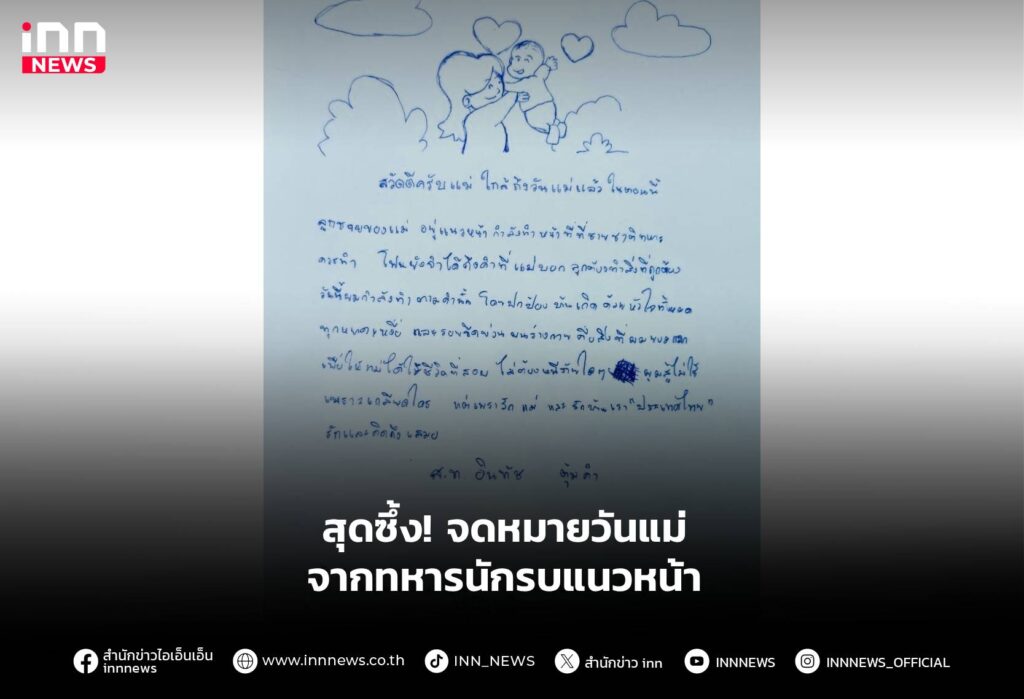 inn
NEWS
สวัสดีครับแม่ ใกล้ถึงวันแม่แล้ว ในตอนนี้
ลูกชายของแม่ อยู่แนวหน้า กำลังทำหน้าที่ที่ชายชาติทหาร
ควรทำ ยังจำได้ถึงคำที่แม่บอก ลูกต้องทำสิ่งที่ถูกต้อง
วันนี้ผมกำลังทำตามคำนั้น โดยปกป้องบ้านเกิด ด้วยหัวใจทั้งหมด
ทุกหยาดเหงื่อ และรอยขีดข่วน บนร่างกาย คือสิ่งที่ผม
เพื่อให้แม่ได้ใช้ชีวิตที่สงบ ไม่ต้องหนีภัยใดๆ ผมสู้ไม่ใช่
เพราะเกลียดใคร แต่เพราะรักแม่ และรักบ้านเรา "ประเทศไทย"
รักและคิดถึงเสมอ
ส.ท. อินทัช ตุ้มคำ
สุดซึ้ง! จดหมายวันแม่
จากทหารนักรบแนวหน้า
สำนักข่าวไอเอ็นเอ็น
innnews
www.innnews.co.th
INN_NEWS
สำนักข่าว inn
INNNEWS
INNNEWS_OFFICIAL